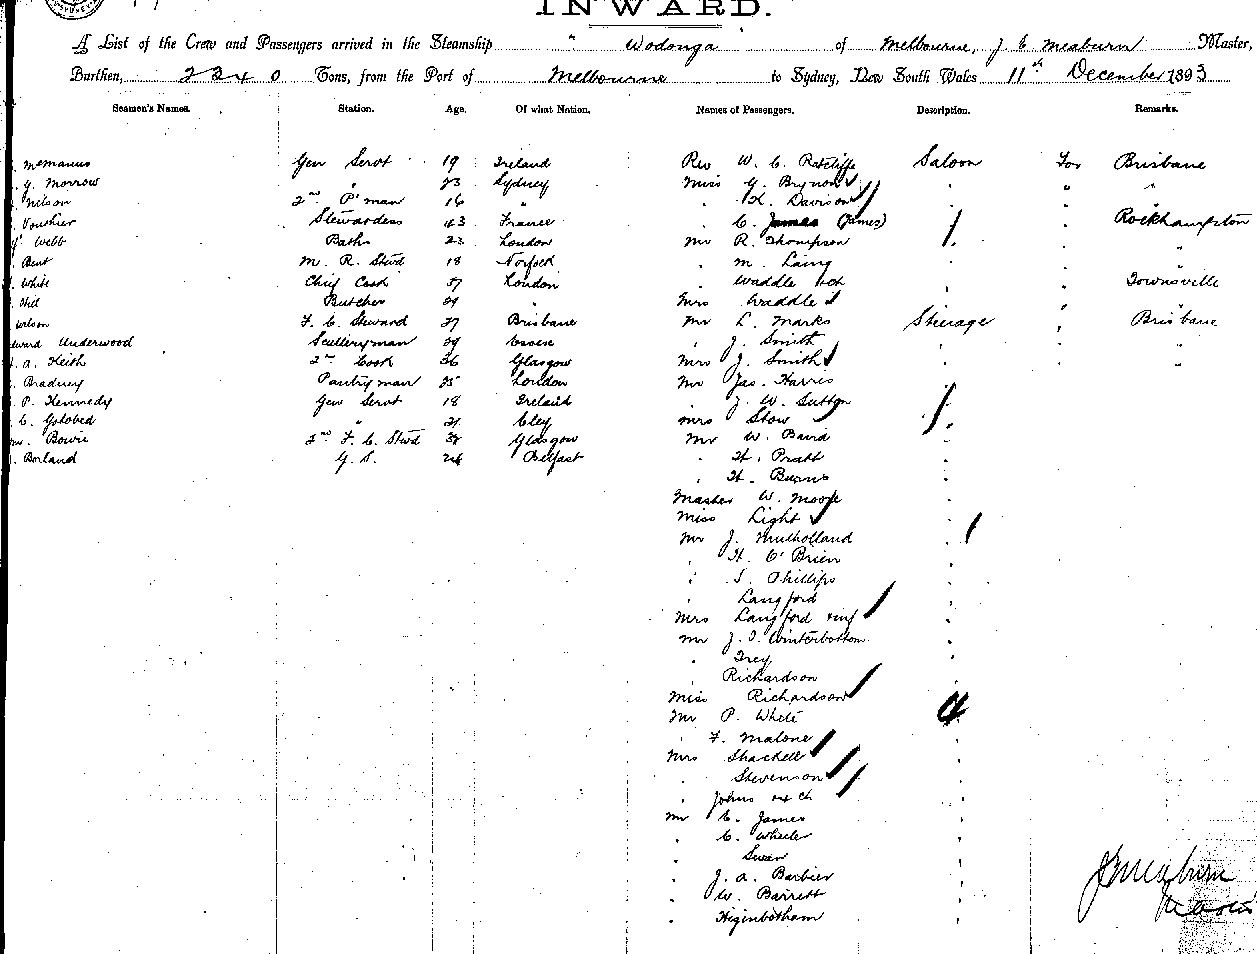 INWARD.
A List of the Crew and Passengers arrived in the Steamship " Wodonga " of Melbourne, J C Meaburn Master,
Burthen, 2340 Tons, from the Port of Melbourne to Sydney, New South Wales 11th December 1893
Seamen's Names. Station. Age. Of what Nation. Names of Passengers. Description. Remarks.
McManus Gen Servt 19 Ireland Rev W. C. Ratcliffe Saloon For Brisbane
Y. Morrow " 23 Sydney Miss G. Brynon " " "
Nelson 2nd P'man 16 " " H. Davison " "
Vouthier Stewardess 43 France " C. James (James) " " Rockhampton
Webb Baths 22 London Mr R. Thompson " " "
Bent M. R. Stwd 18 Norfolk " M. Laing " " "
White Chief Cook 37 London " Waddle " " Townsville
Butcher 29 " Mrs Waddle " " "
Wilson F. C. Steward 27 Brisbane Mr L. Marks Steerage " Brisbane
Edward Underwood Scullery man 29 Essex " J. Smith " " "
A. Keith 2nd Cook 36 Glasgow Mrs J. Smith " " "
Bradney Pantry man 25 London Mr Jas. Harris "
P. Kennedy Gen Servt 18 Ireland " J. W. Sutton "
C. " 21 Cley Mrs Stow "
Bowie 2nd F. C. Stwd 32 Glasgow Mr W. Baird "
Borland G. S. 24 Belfast " H. Pratt "
" H. Burns "
Master W. Moore "
Miss Light "
Mr J. Mulholland "
" H. O'Brien "
" S. Phillips "
" Langford "
Mrs Langford "
Mr J. T. Winterbottom "
" Trey "
" Richardson "
Miss Richardson "
Mr P. White
" F. Malone "
Mrs Shackell "
" Stevenson "
" Johns "
Mr C. James "
" C. Wheeler "
" Swan "
" J. A. Barbier "
" W. Barrett "
" Higinbotham "
J C Meaburn
Master